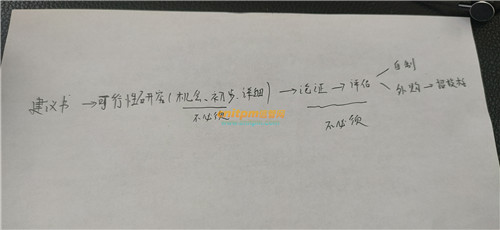 自制
建议书 → 可行性研究(机会、初步、详细) → 论证 → 评估
外购 → 招投标
不必须
不必须